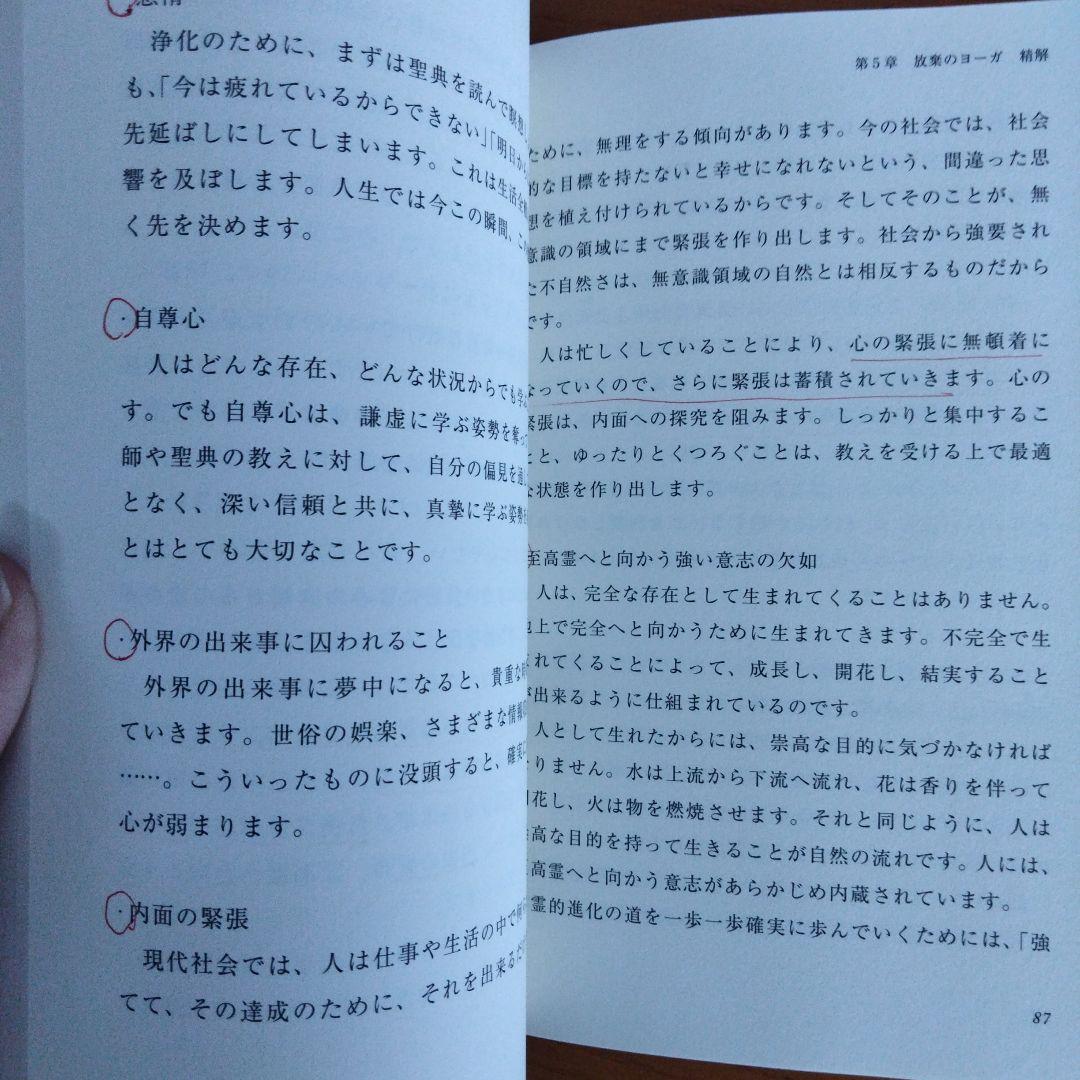 怠惰
浄化のために、まずは聖典を読んで瞑想
も、「今は疲れているからできない」「明日から
先延ばしにしてしまいます。これは生活全
響を及ぼします。人生では今この瞬間、こ
く先を決めます。
・自尊心
人はどんな存在、どんな状況からでも学
す。でも自尊心は、謙虚に学ぶ姿勢を奪っ
師や聖典の教えに対して、自分の偏見を通
となく、深い信頼と共に、真摯に学ぶ姿勢を
とはとても大切なことです。
・外界の出来事に囚われること
外界の出来事に夢中になると、貴重な時
ていきます。世俗の娯楽、さまざまな情報
……。こういったものに没頭すると、確実に
心が弱まります。
・内面の緊張
現代社会では、人は仕事や生活の中で
てて、その達成のために、それを出来るだ
第5章 放棄のヨーガ 精解
ために、無理をする傾向があります。今の社会では、社会
的な目標を持たないと幸せになれないという、間違った思
想を植え付けられているからです。そしてそのことが、無
意識の領域にまで緊張を作り出します。社会から強要され
た不自然さは、無意識領域の自然とは相反するものだから
です。
人は忙しくしていることにより、心の緊張に無頓着に
なっていくので、さらに緊張は蓄積されていきます。心の
緊張は、内面への探究を阻みます。しっかりと集中するこ
とと、ゆったりとくつろぐことは、教えを受ける上で最適
な状態を作り出します。
至高霊へと向かう強い意志の欠如
人は、完全な存在として生まれてくることはありません。
地上で完全へと向かうために生まれてきます。不完全で生
まれてくることによって、成長し、開花し、結実すること
が出来るように仕組まれているのです。
人として生れたからには、崇高な目的に気づかなければ
なりません。水は上流から下流へ流れ、花は香りを伴って
開花し、火は物を燃焼させます。それと同じように、人は
崇高な目的を持って生きることが自然の流れです。人には、
至高霊へと向かう意志があらかじめ内蔵されています。
霊的進化の道を一歩一歩確実に歩んでいくためには、「強
87